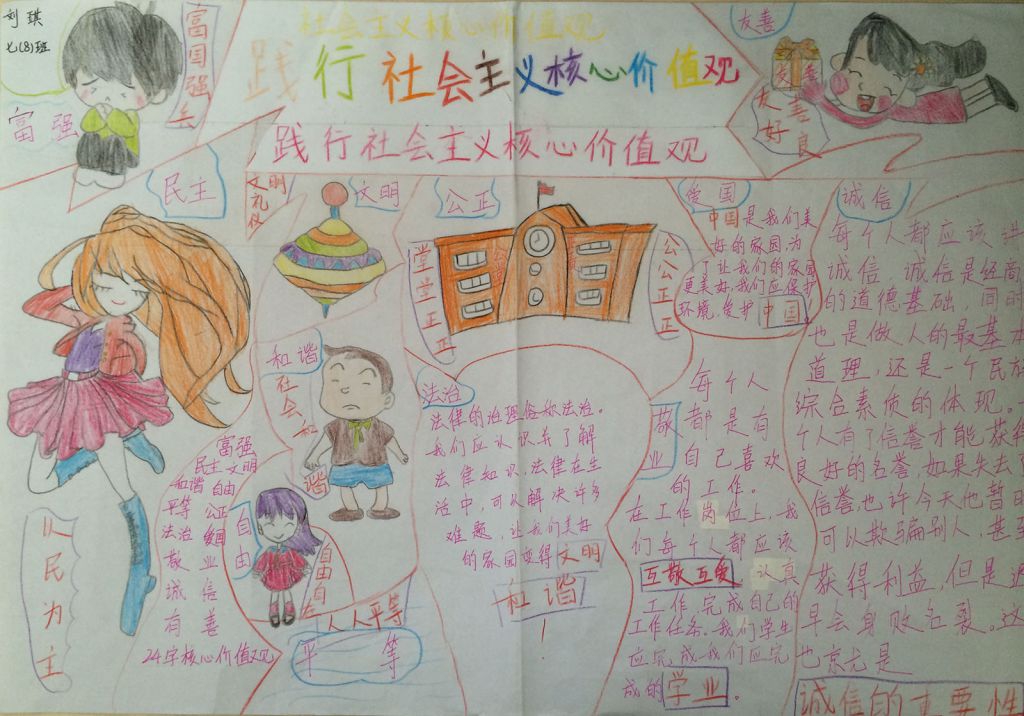 刘琪
七(8)班
富强
富国强兵
社会主义核心价值观
践行社会主义核心价值观
践行社会主义核心价值观
友善
友善
友善
好良
民主
以民为主
文明
礼仪
文明
公正
堂堂正正
公公正正
和谐
社会和谐
自由
自由自在
人人平等
平等
富强
民主 文明
和谐 自由
平等 公正
法治 爱国
敬业
诚信
有善
24字核心价值观
法治
法律的治理俗称法治。
我们应认识并了解
法律知识,法律在生
活中,可以解决许多
难题,让我们美好
的家园变得文明
和谐
!
爱国
中国是我们美
好的家园,为
了让我们的家园
更美好,我们应保护
环境,爱护中国
敬业
每个人
都是有
自己喜欢
的工作。
在工作岗位上,我
们每个人都应该
互敬互爱 认真
工作,完成自己的
工作任务。我们学生
应完成我们应完
成的学业。
诚信
每个人都应该讲
诚信 诚信是经商
的道德基础,同时
也是做人的最基本
道理,还是一个民族
综合素质的体现。
个人有了信誉才能获得
良好的名誉,如果失去了
信誉,也许今天他暂时
可以欺骗别人,甚至
获得利益,但是迟
早会身败名裂。这
也就是
诚信的重要性